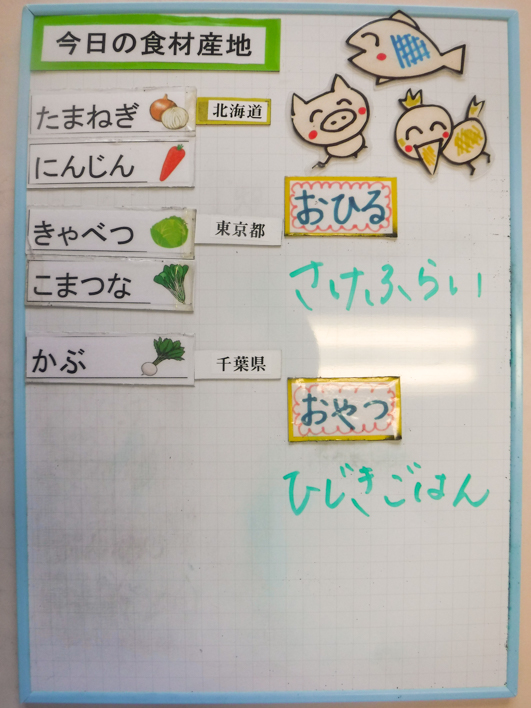 今日の食材産地
たまねぎ 北海道
にんじん
きゃべつ 東京都
こまつな
かぶ 千葉県
おひる
さけふらい
おやつ
ひじきごはん